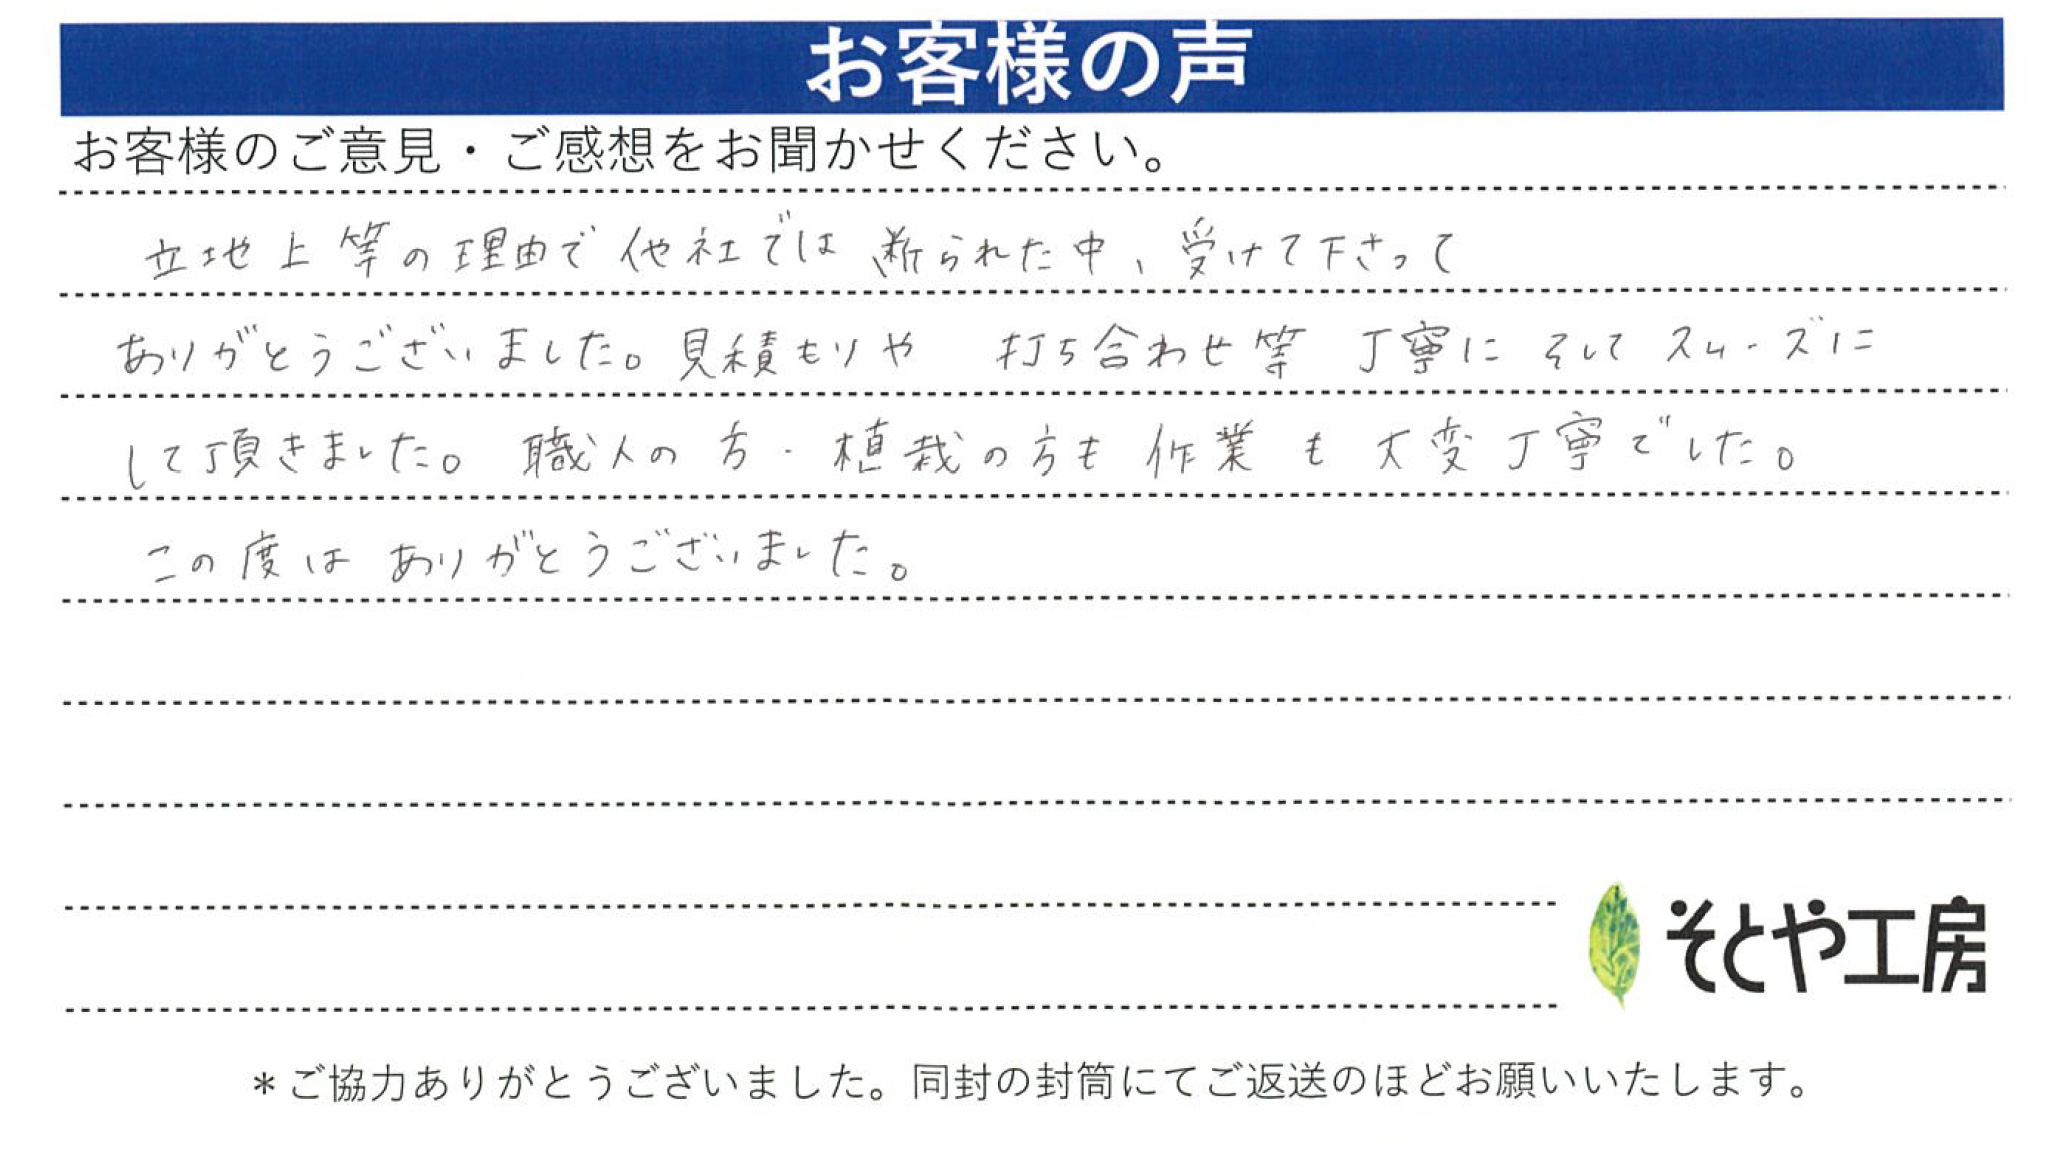 お客様の声
お客様のご意見・ご感想をお聞かせください。
立地上等の理由で他社では断られた中、受けて下さって
ありがとうございました。見積もりや 打ち合わせ等 丁寧に そして スムーズに
して頂きました。職人の方・植栽の方も 作業も 大変丁寧でした。
この度は ありがとうございました。
そとや工房
＊ご協力ありがとうございました。同封の封筒にてご返送のほどお願いいたします。